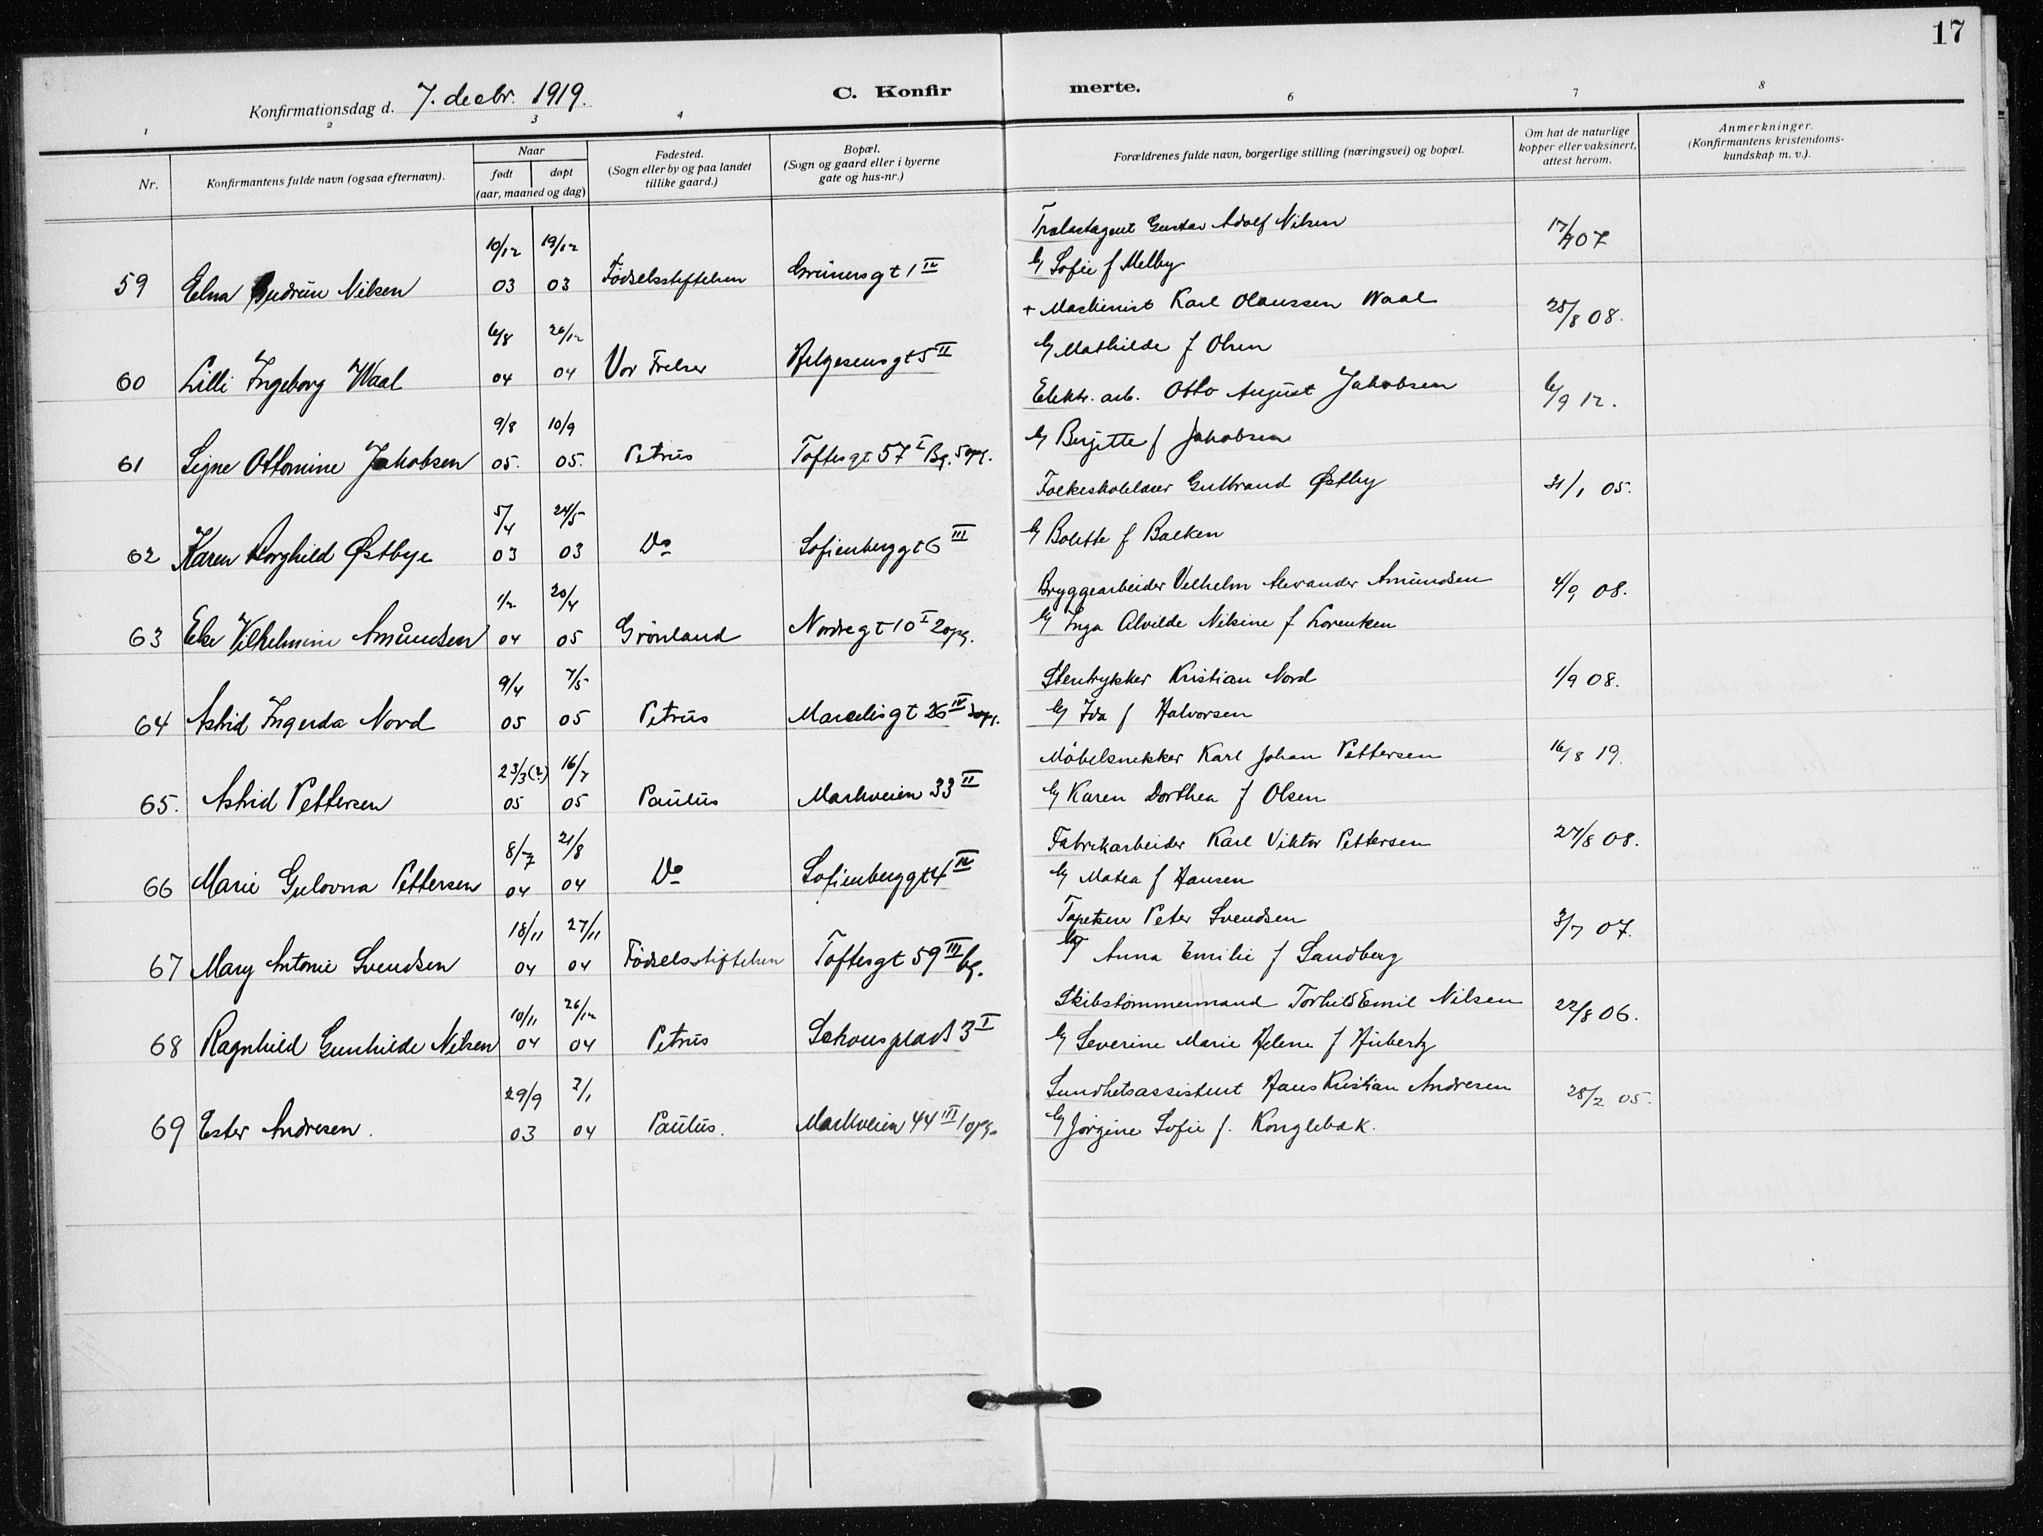 17
Konfirmationsdag d. 7. decbr. 1919.
C. Konfirmerte.
1 2 3 4 6 7 8
Nr.
Konfirmantens fulde navn (ogsaa efternavn).
Naar
født døpt
(aar, maaned og dag)
Fødested.
(Sogn eller by og paa landet
tillike gaard.)
Bopæl.
(Sogn og gaard eller i byerne
gate og hus-nr.)
Forældrenes fulde navn, borgerlige stilling (næringsvei) og bopæl.
Om hat de naturlige
kopper eller vaksinert,
attest herom.
Anmerkninger.
(Konfirmantens kristendoms-
kundskap m. v.).
10/12 19/12 Trælastagent Gustav Adolf Nilsen 07
59 Elna Gudrun Nilsen 03 03 Fødselsstiftelsen Grünersgt 1 IV Eg Sofie f Melby
6/8 26/12 + Maskinist Karl Olaussen Waal 25/8 08.
60 Lilli Ingeborg Waal 04 04 Vor Frelser Helgesensgt 5 II Eg Mathilde f Olsen
9/8 10/9 Elektr. arb. Otto August Jakobsen 6/9 12.
61 Signe Ottomine Jakobsen 05. 05. Petrus Toftesgt 57 I Bg. 5opg. Eg Berjette f Jakobsen
5/4 24/5 Folkeskolelærer Gulbrand Østby 31/1 05.
62 Karen Borghild Østbye 03 03 Do Sofienberggt 6 III Eg Bolette f Balken
1/2 20/4 Bryggearbeider Vilhelm Alexander Amundsen 4/9 08.
63 Else Vilhelmine Amundsen 04 05 Grönland Nordregt 10 I 2opg. Eg Inga Alvilde Nilsine f Lorentzen
9/4 7/5 Stentrykker Kristian Nord 1/9 08.
64 Astrid Ingerda Nord 05 05 Petrus Marcelisgt 26 IV 2opg. Eg Ida f Halvorsen
23/3 (2) 16/7 Möbelsnekker Karl Johan Pettersen 16/8 19.
65. Astrid Pettersen 05 05 Paulus Markveien 33 II Eg Karen Dorthea f Olsen
8/7 21/8 Fabrikarbeider Karl Viktor Pettersen 27/8 08.
66 Marie Gulovna Pettersen 04 04 Do Sofienberggt 4 IV Eg Matea f Hansen
18/11 27/11 Tapetserer Peter Svendsen 3/7 07.
67 Mary Antonie Svendsen 04 04 Fødselsstiftelsen Toftesgt 59 III bg. Eg Anna Emilie f Sandberg
10/11 26/12 Skibstömmermand Torkild Emil Nilsen 22/8 06.
68 Ragnhild Gunhilde Nilsen 04 04 Petrus Schousplads 3 I Eg Severine Marie Helene f Hübertz
29/9 3/1 Sundhetsassistent Hans Kristian Andresen 28/2 05.
69 Ester Andresen. 03 04 Paulus. Markveien 44 III 1opg. Eg Jörgine Sofie f. Konglebak.